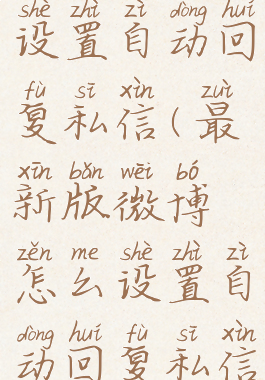 shè zhì zì dòng huí
设置自动回
fù sī xìn zuì
复私信(最
xīn bǎn wēi bó
新版微博
zěn me shè zhì zì
怎么设置自
dòng huí fù sī xìn
动回复私信